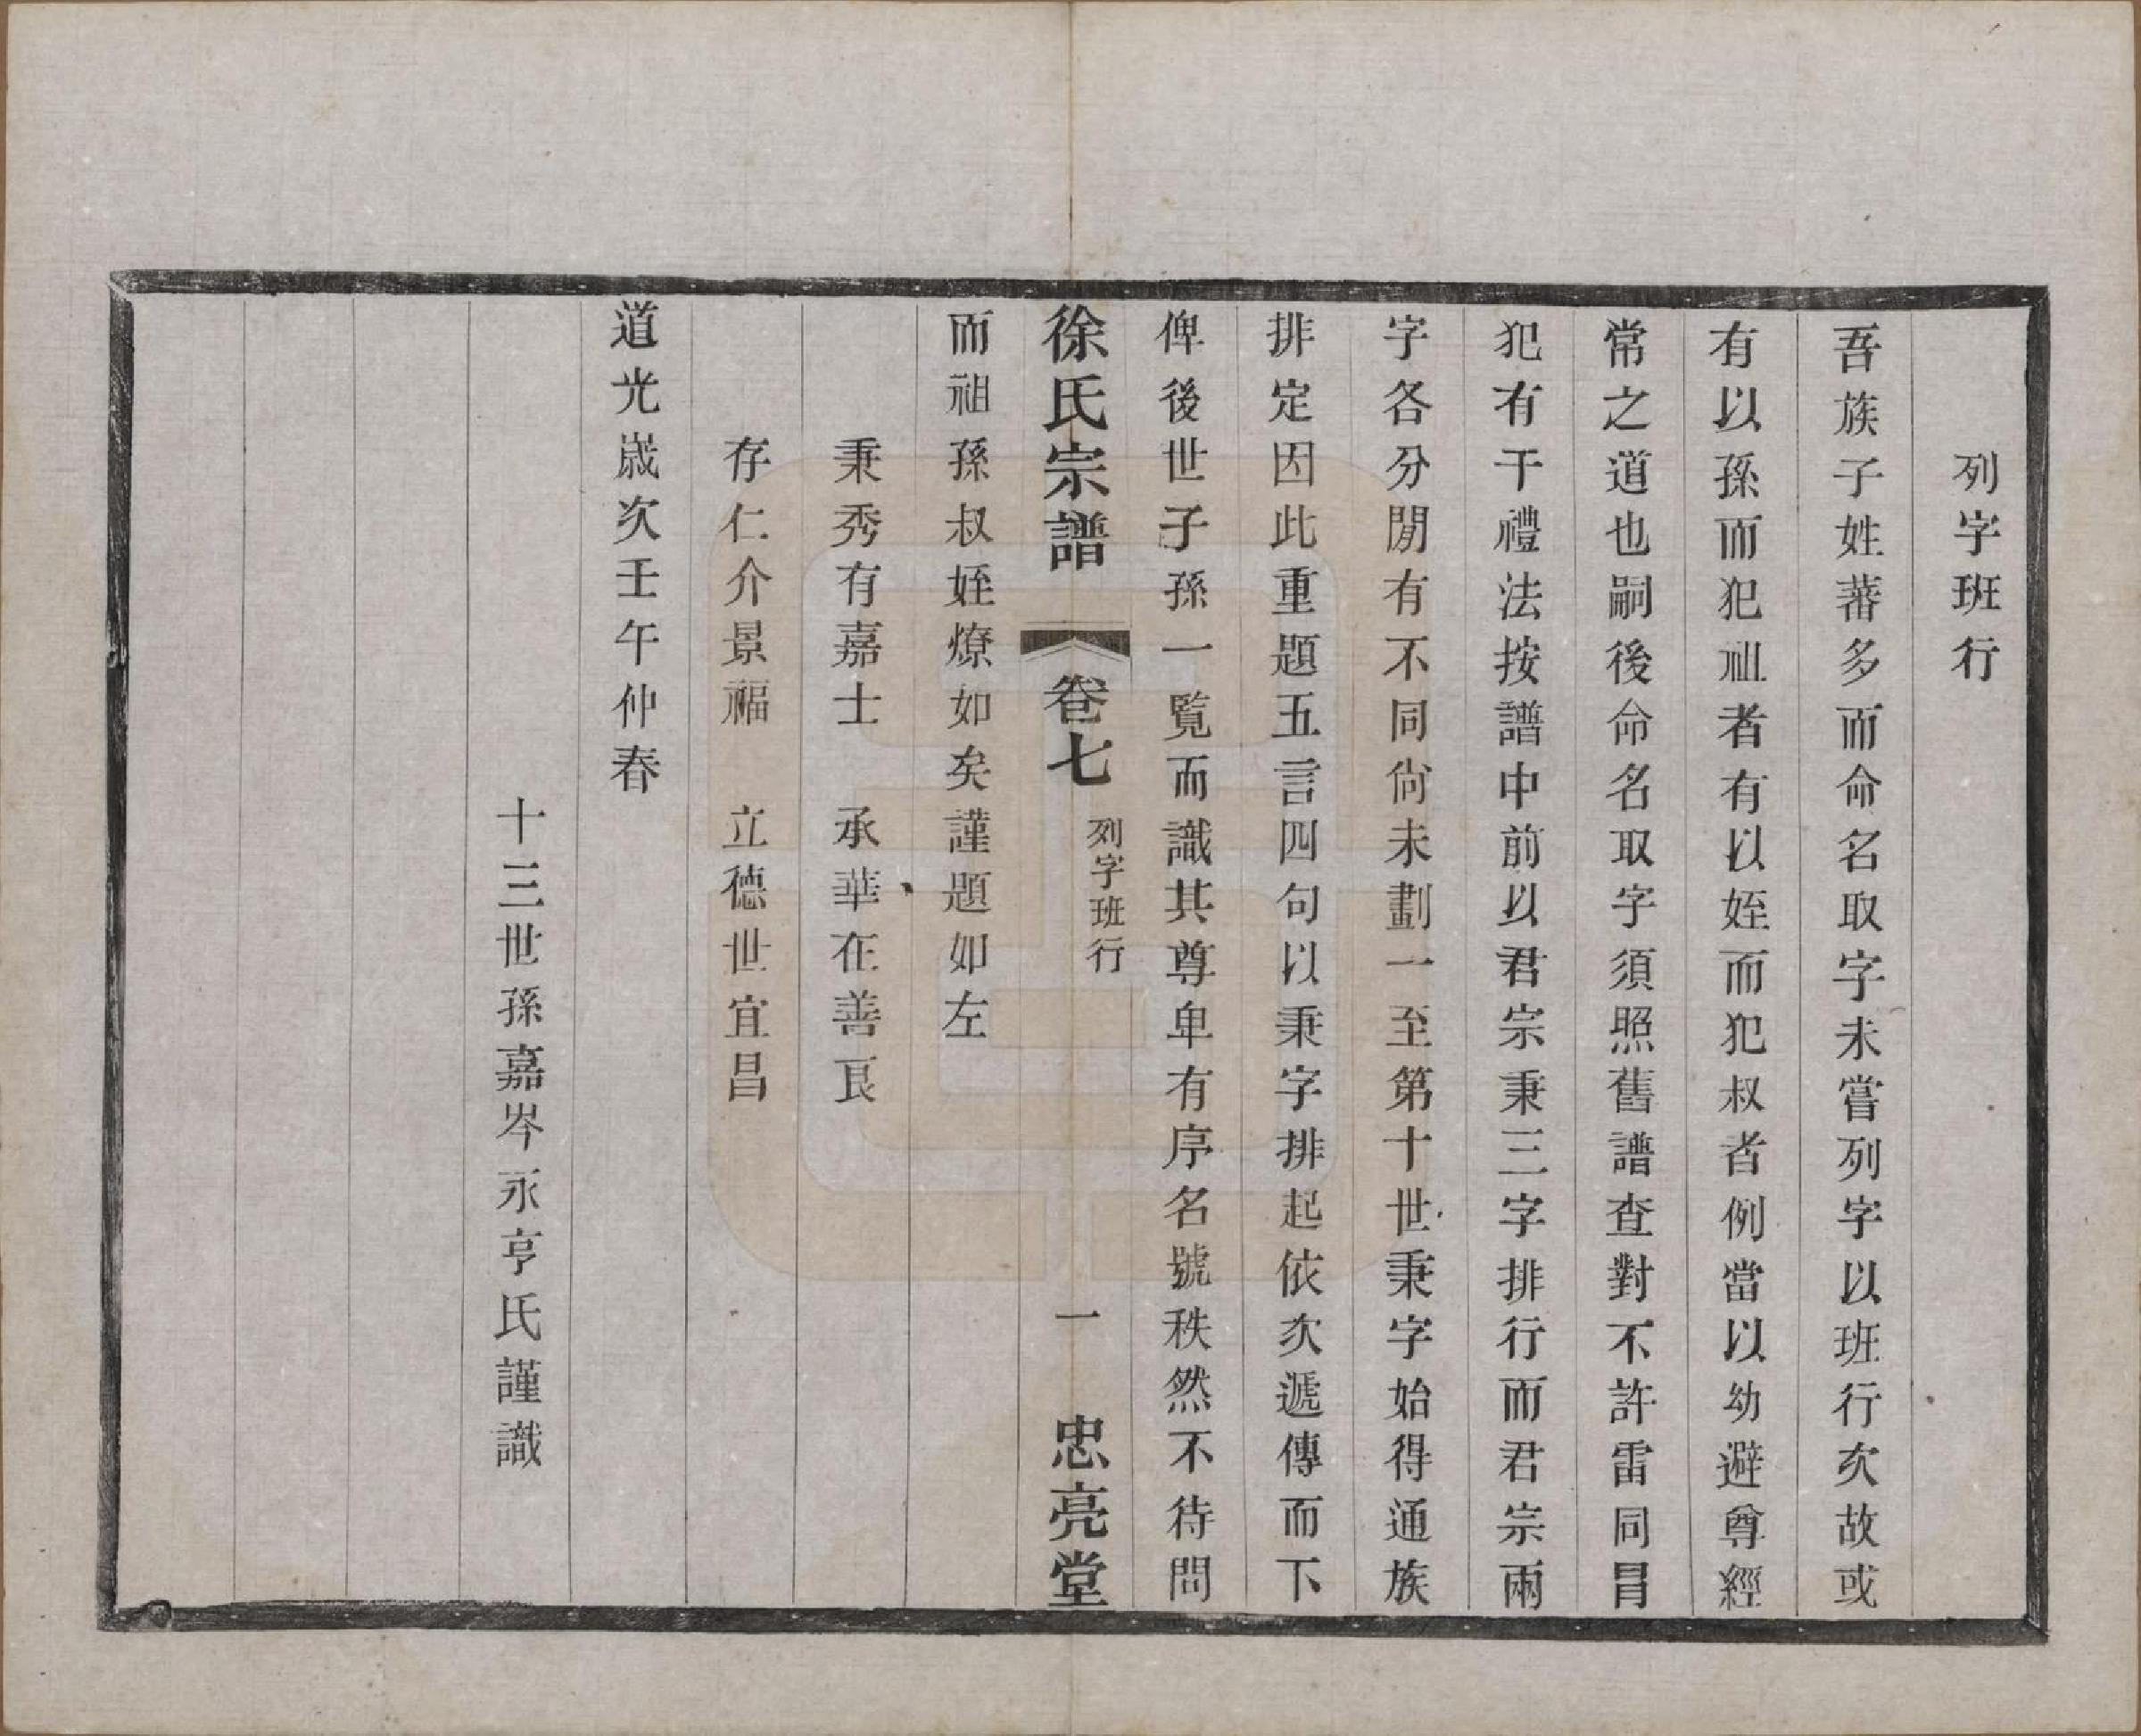 列字班行
吾族子姓蕃多而命名取字未嘗列字以班行次故或
有以孫而犯祖者有以姪而犯叔者例當以幼避尊經
常之道也嗣後命名取字須照舊譜查對不許雷同冒
犯有干禮法按譜中前以君宗秉三字排行而君宗兩
字各分閒有不同尙未劃一至第十世秉字始得通族
排定因此重題五言四句以秉字排起依次遞傳而下
俾後世子孫一覽而識其尊卑有序名號秩然不待問
徐氏宗譜 卷七 列字班行 一 忠亮堂
而祖孫叔姪燎如矣謹題如左
秉秀有嘉士 承華在善良
存仁介景福 立德世宜昌
道光歲次壬午仲春
十三世孫嘉岑永亨氏謹識